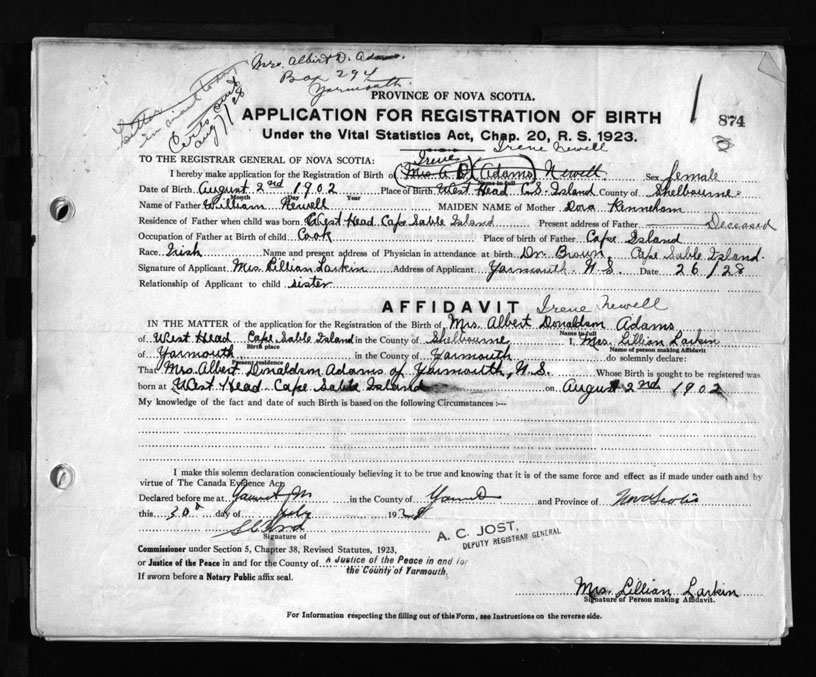 Mrs. Albert D. Adams.
Box 294
Yarmouth
Certs sent
Aug 7/28
PROVINCE OF NOVA SCOTIA.
874
APPLICATION FOR REGISTRATION OF BIRTH
Under the Vital Statistics Act, Chap. 20, R. S. 1923.
Irene Newell
TO THE REGISTRAR GENERAL OF NOVA SCOTIA: Irene
I hereby make application for the Registration of Birth of (Mrs. A. D. (Adams) Newell Sex female
Name in full
Date of Birth August 2nd 1902 Place of Birth West Head C.S. Island County of Shelbourne
Month Day Year
Name of Father William Newell MAIDEN NAME of Mother Dora Kenneham
Residence of Father when child was born West Head Cape Sable Island Present address of Father Deceased
Occupation of Father at Birth of child Cook Place of birth of Father Cape Island
Race Irish Name and present address of Physician in attendance at birth Dr. Brown Cape Sable Island.
Signature of Applicant Mrs. Lillian Larkin Address of Applicant Yarmouth N.S. Date 26/28
Relationship of Applicant to child sister
AFFIDAVIT Irene Newell
IN THE MATTER of the application for the Registration of the Birth of Mrs. Albert Donaldson Adams
Name in full
of West Head Cape Sable Island in the County of Shelbourne I, Mrs. Lillian Larkin
Birth place Name of person making Affidavit
of Yarmouth in the County of Yarmouth do solemnly declare:
Present residence
That Mrs. Albert Donaldson Adams of Yarmouth, N.S. Whose Birth is sought to be registered was
born at West Head Cape Sable Island on August 2nd 1902
My knowledge of the fact and date of such Birth is based on the following Circumstances :—
I make this solemn declaration conscientiously believing it to be true and knowing that it is of the same force and effect as if made under oath and by
virtue of The Canada Evidence Act.
Declared before me at in the County of and Province of Nova Scotia
this 30 day of July 1928
Signature of
A. C. JOST,
DEPUTY REGISTRAR GENERAL
Commissioner under Section 5, Chapter 38, Revised Statutes, 1923,
or Justice of the Peace in and for the County of A Justice of the Peace in and for
the County of Yarmouth.
If sworn before a Notary Public affix seal.
Mrs. Lillian Larkin
Signature of Person making Affidavit.
For Information respecting the filling out of this Form, see Instructions on the reverse side.